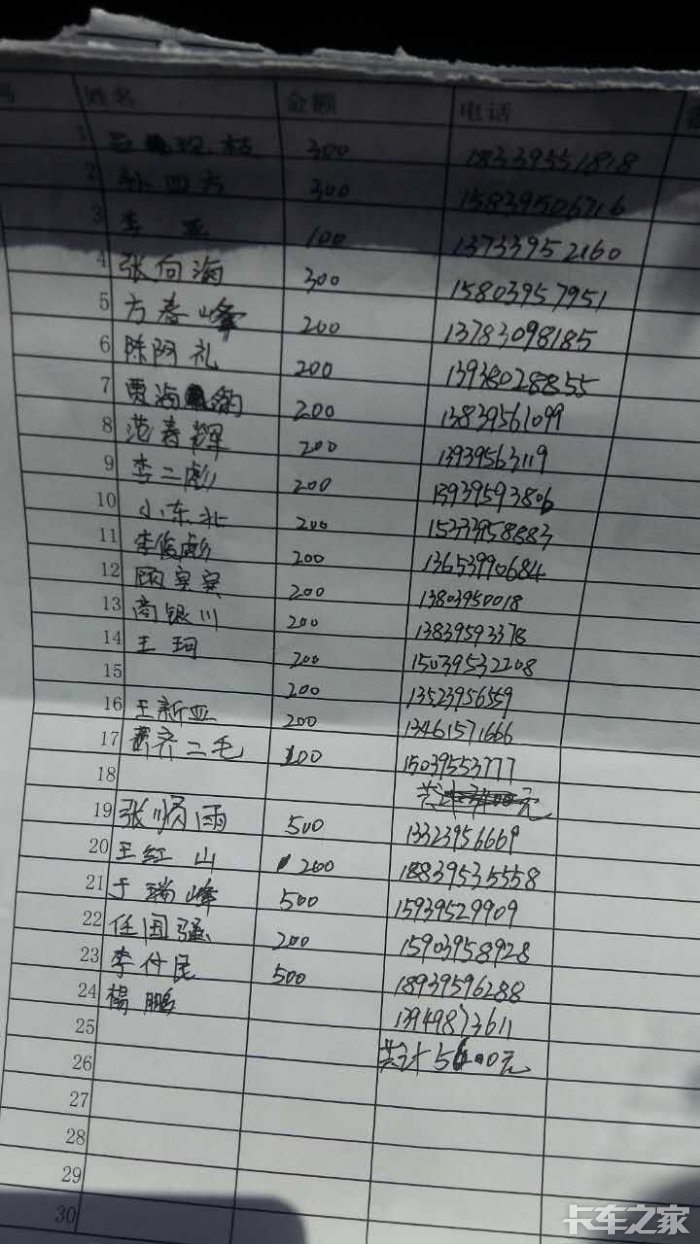 号 姓名 金额 电话
1 300 18339551818
2 孙四方 300 15839506716
3 李亚 100 13733952160
4 张向海 300 15803957951
5 方春峰 200 13783098185
6 陈阿礼 200 13938028855
7 贾海豹 200 13839561099
8 范春辉 200 13939563119
9 李二彪 200 15939593806
10 小东北 200 15333958883
11 李俊彪 200 13653990684
12 顾宾宾 200 13803950018
13 商银川 200 13839593378
14 王珂 200 15039532208
15 200 13523956559
16 王新亚 200 13461571666
17 齐二毛 100 15039553777
18 共计3400元
19 张顺雨 500 13323956669
20 王红山 200 18839535558
21 于瑞峰 500 15939529909
22 任国强 200 15903958928
23 李付民 500 18939596288
24 杨鹏 13949873611
25 共计5600元
26
27
28
29
30
卡车之家